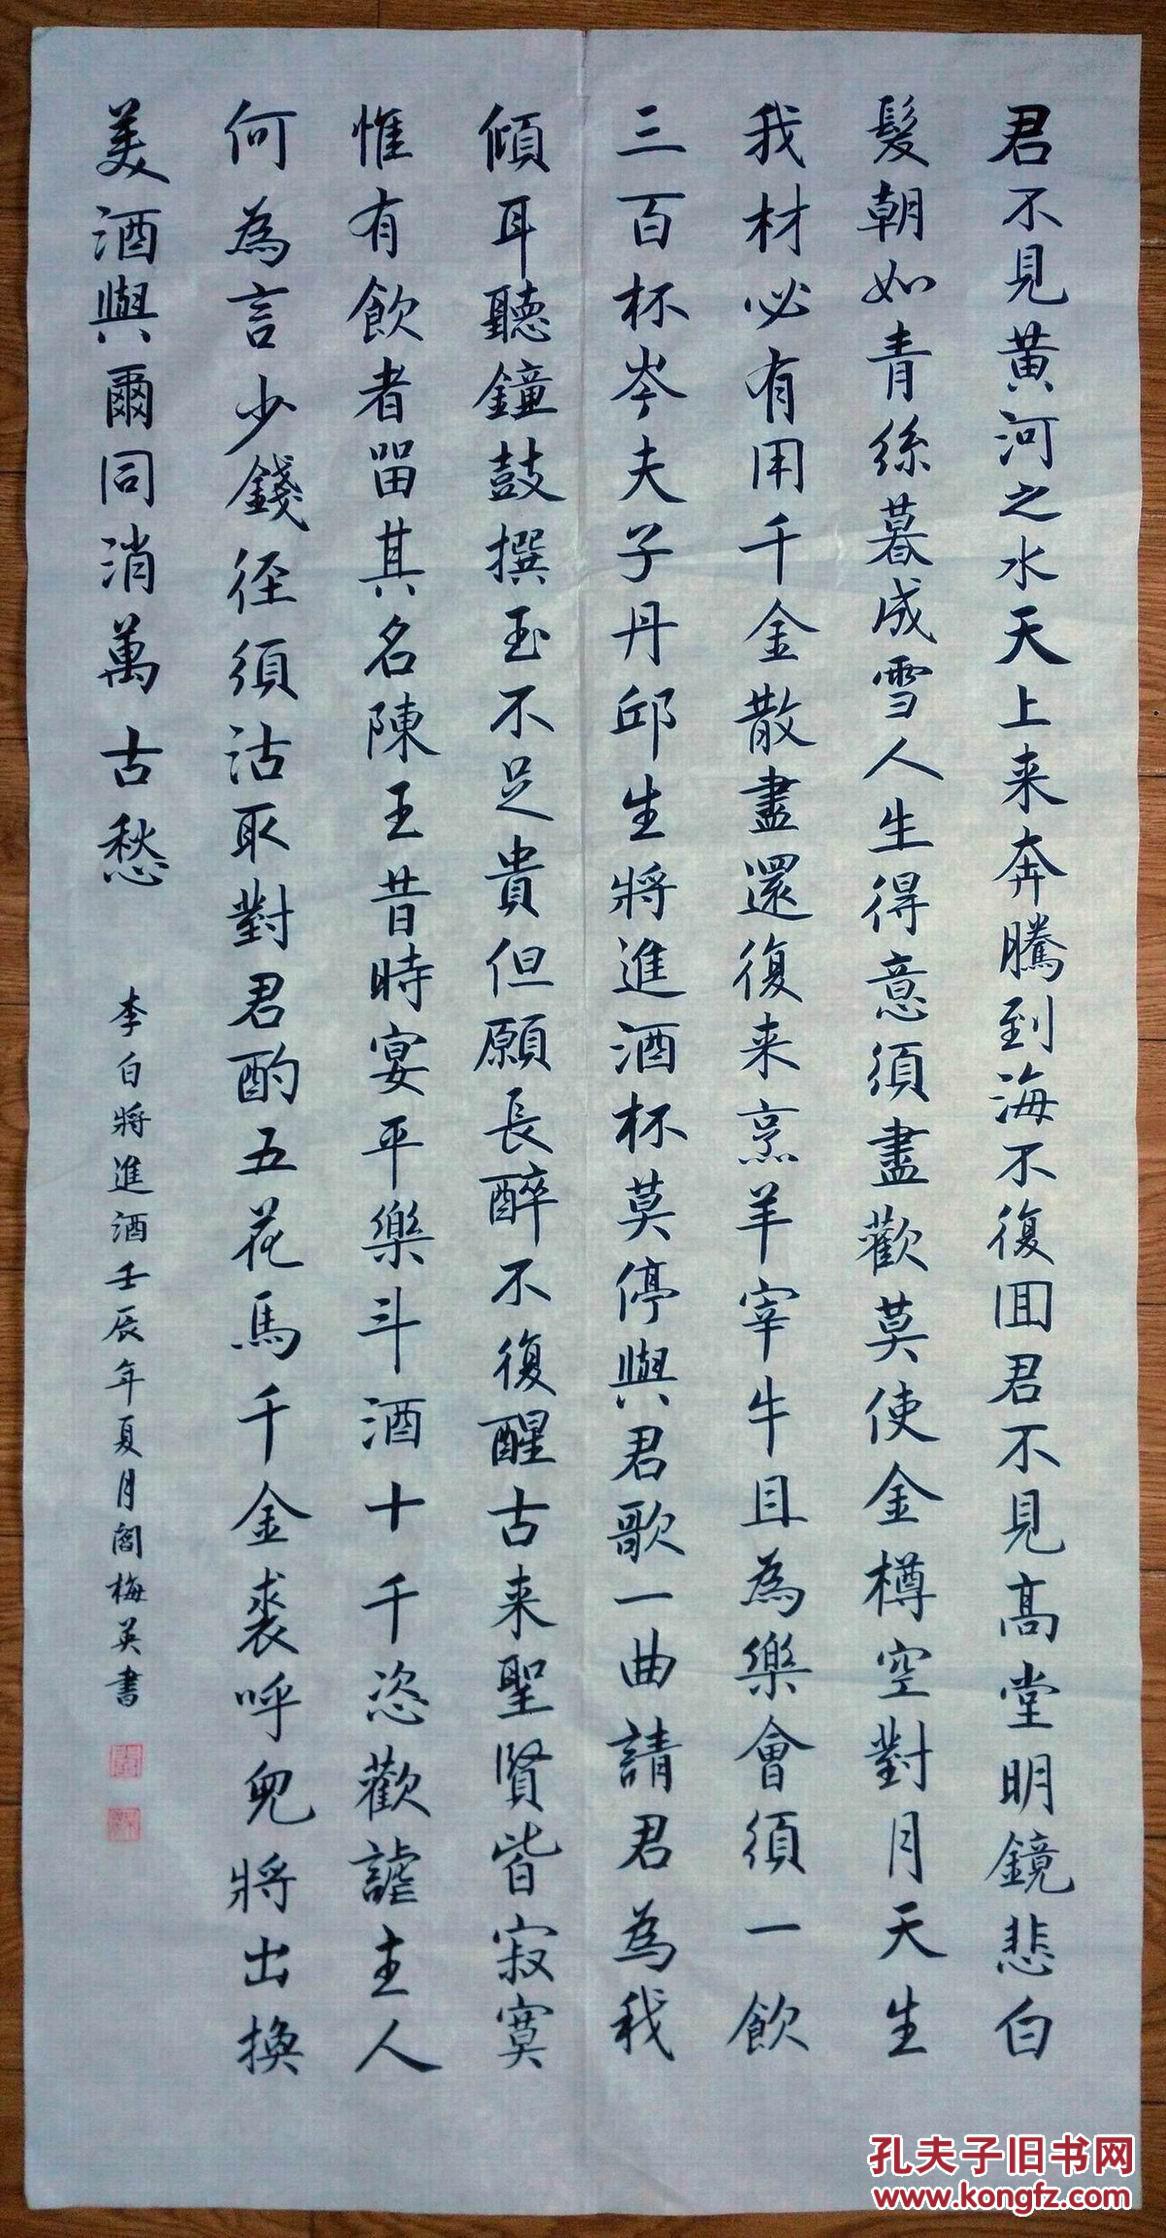 君不見黄河之水天上来奔騰到海不復囬君不見髙堂明鏡悲白
髮朝如青絲暮成雪人生得意須盡歡莫使金樽空對月天生
我材必有用千金散盡還復来烹羊宰牛且為樂會須一飲
三百杯岑夫子丹邱生將進酒杯莫停與君歌一曲請君為我
傾耳聽鐘鼓撰玉不足貴但願長醉不復醒古来聖賢皆寂寞
惟有飲者留其名陳王昔時宴平樂斗酒十千恣歡謔主人
何為言少錢徑須沽取對君酌五花馬千金裘呼兒將出換
美酒與爾同消萬古愁
李白將進酒壬辰年夏月閻梅英書
孔夫子旧书网
www.kongfz.com